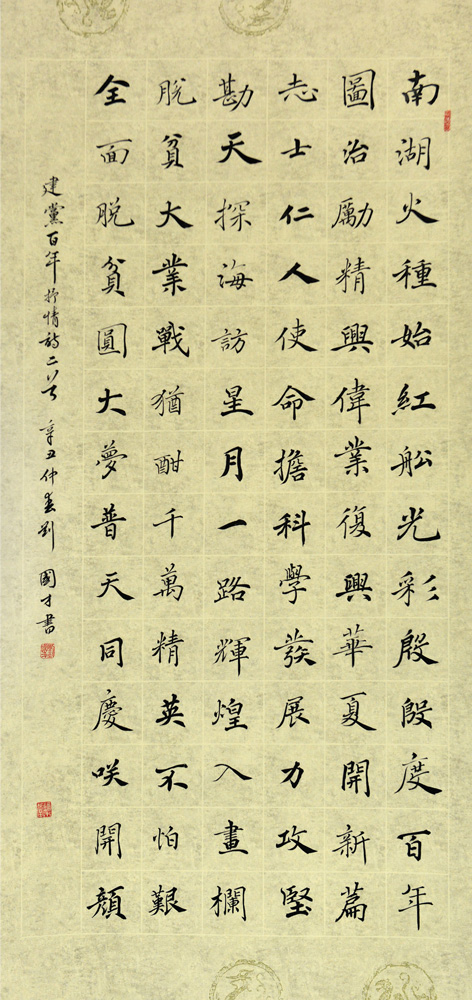 南湖火種始紅船光彩殷殷度百年
圖治勵精興偉業復興華夏開新篇
志士仁人使命擔科學發展力攻堅
勘天探海訪星月一路輝煌入畫欄
脫貧大業戰猶酣千萬精英不怕艱
全面脫貧圓大夢普天同慶咲開顏
建黨百年抒情詩二首 辛丑仲春劉國才書